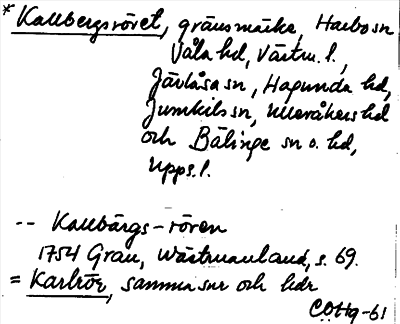 * Kallbergsröret, gränsmärke, Harbo sn
Våla hd, Västm. l.,
Järlåsa sn, Hagunda hd,
Jumkils sn, Ulleråkers hd
och Bälinge sn o. hd,
Upps. l.
-- Kallbärgs-rören
1754 Grau, Wästmanland, s. 69.
= Karlrör, samma snr och hdr
COHq-61